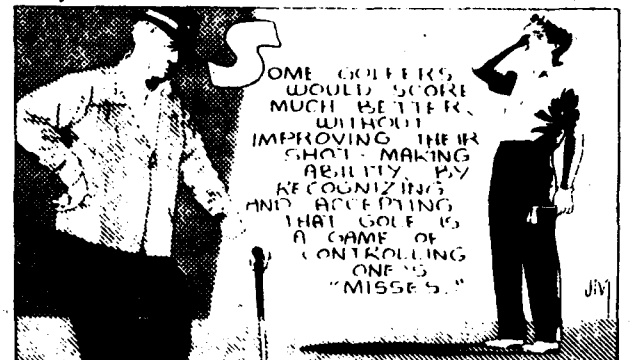 SOME GOLFERS
WOULD SCORE
MUCH BETTER,
WITHOUT
IMPROVING THEIR
SHOT-MAKING
ABILITY, BY
RECOGNIZING
AND ACCEPTING
THAT GOLF IS
A GAME OF
CONTROLLING
ONE'S
"MISSES."
JIM